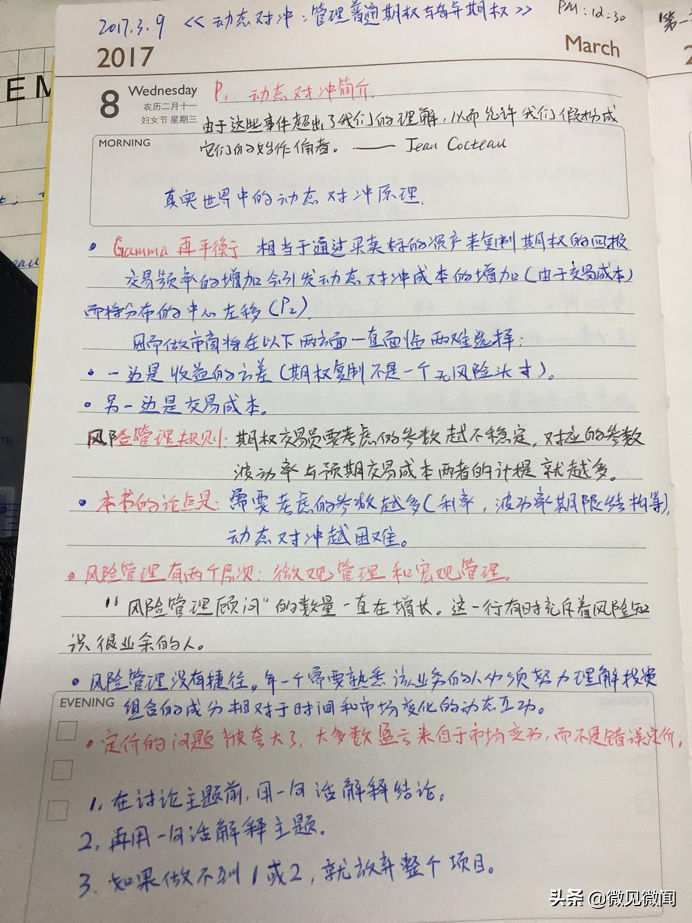 2017.3.9 <<动态对冲：管理普通期权与奇异期权>> PM:12:30
2017
March
第一
8 Wednesday
农历二月十一
妇女节 星期三
P1 动态对冲简介
由于这些事件超出了我们的理解，从而允许我们假扮成
它们的始作俑者。—— Jean Cocteau
MORNING
真实世界中的动态对冲原理.
• Gamma再平衡 相当于通过买卖标的资产来复制期权的回报
交易频率的增加会引发动态对冲成本的增加(由于交易成本)
而将分布的中心左移(P2).
因而做市商将在以下两方面一直面临两难选择:
• 一边是收益的方差(期权复制不是一个无风险决策).
• 另一边是交易成本.
风险管理规则: 期权交易员要考虑的参数越不稳定, 对应的参数
波动率与预期交易成本两者的计提就越多。
• 本书的论点是: 需要考虑的参数越多(利率, 波动率期限结构等),
动态对冲越困难。
• 风险管理有两个层次: 微观管理和宏观管理。
"风险管理顾问"的数量一直在增长。这一行有时充斥着风险知
识很业余的人。
• 风险管理没有捷径。每一个需要熟悉该业务的人必须努力理解投资
组合的成分相对于时间和市场变化的动态互动。
EVENING
• 定价的问题被夸大了, 大多数盈亏来自于市场变动, 而不是错误定价。
1. 在讨论主题前, 用一句话解释结论。
2. 再用一句话解释主题。
3. 如果做不到1或2, 就放弃整个项目。
头条 @微见微闻